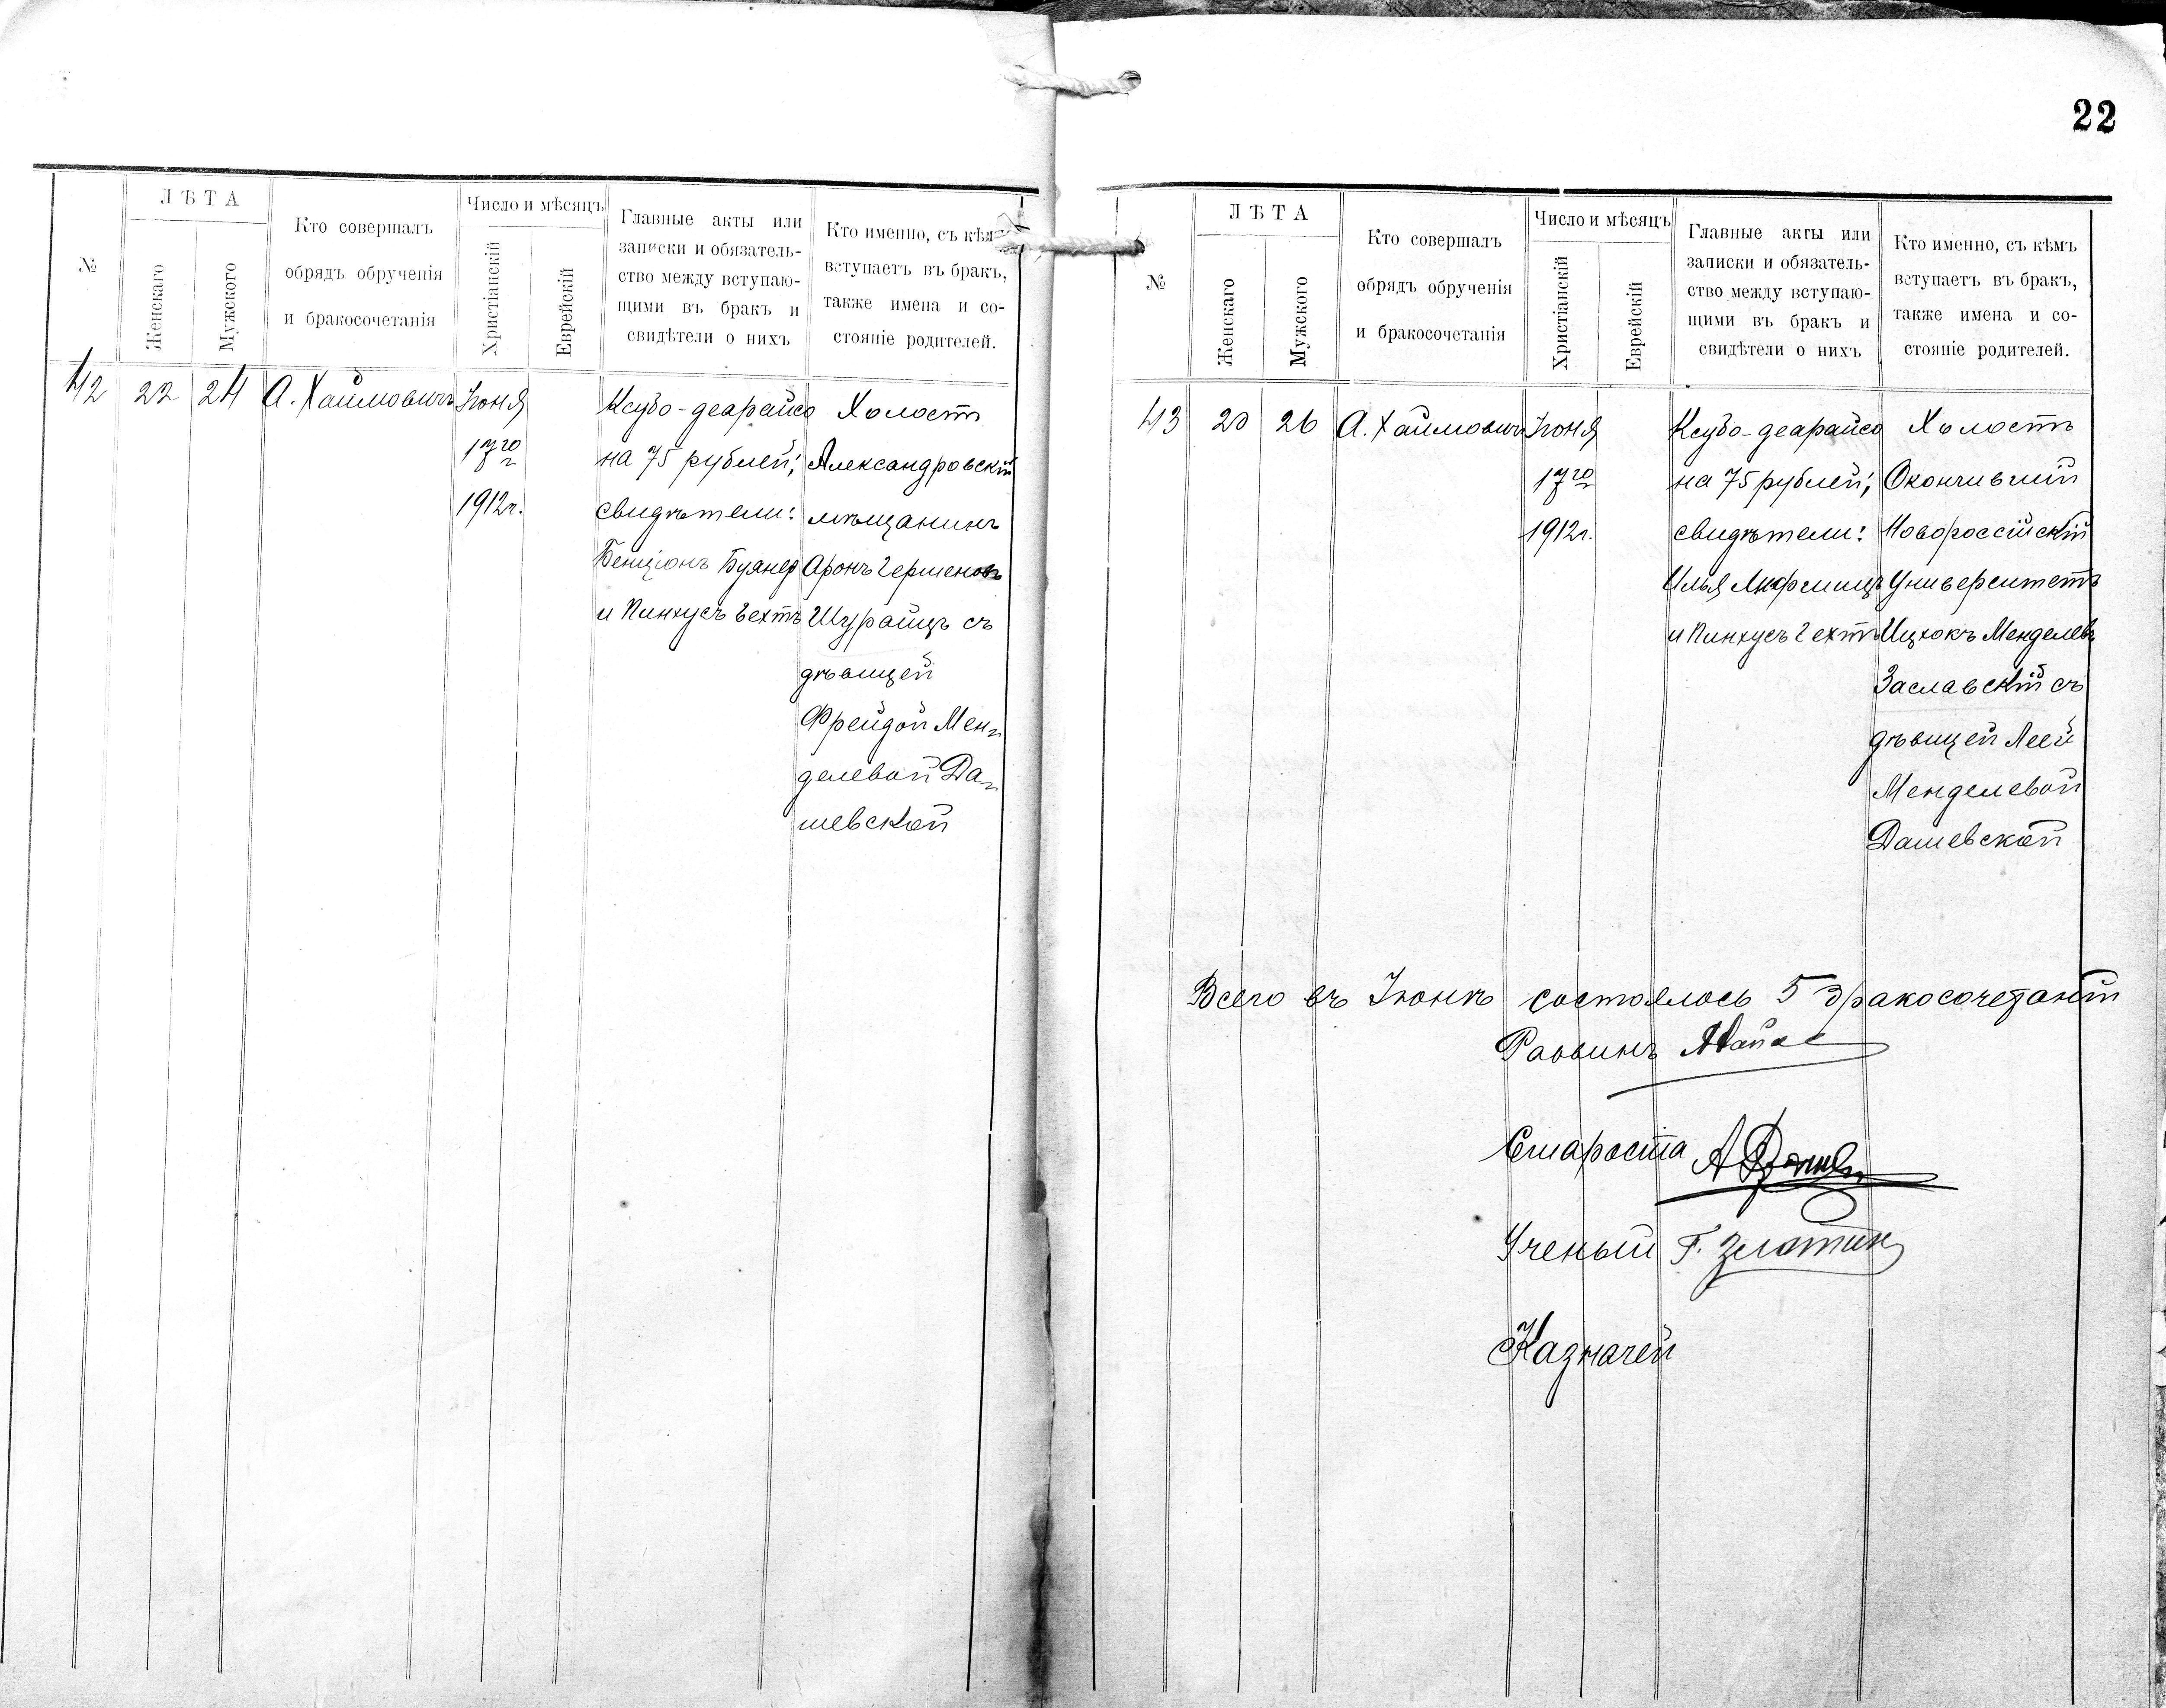 №
ЛѢТА
Женскаго
Мужского
Кто совершалъ
обрядъ обрученія
и бракосочетанія
Число и мѣсяцъ
Христіанскій
Еврейскій
Главные акты или
записки и обязатель-
ство между вступаю-
щими въ бракъ и
свидѣтели о нихъ
Кто именно, съ кѣмъ
вступаетъ въ бракъ,
также имена и со-
стояніе родителей.
42 22 24 А. Хаимовичъ
Іюня
17го
1912г.
Ксубо-деарайсо
на 75 рублей;
свидѣтели:
Бенціонъ
и Пинхусъ Гехтъ
Холостъ
Александровскій
мѣщанинъ
Аронъ Гершеновъ
Шурацъ съ
дѣвицей
Фрейдой Мен-
делевой Да-
шевской
22
№
ЛѢТА
Женскаго
Мужского
Кто совершалъ
обрядъ обрученія
и бракосочетанія
Число и мѣсяцъ
Христіанскій
Еврейскій
Главные акты или
записки и обязатель-
ство между вступаю-
щими въ бракъ и
свидѣтели о нихъ
Кто именно, съ кѣмъ
вступаетъ въ бракъ,
также имена и со-
стояніе родителей.
43 20 26 А. Хаимовичъ
Іюня
17го
1912г.
Ксубо-деарайсо
на 75 рублей;
свидѣтели:
Илья
и Пинхусъ Гехтъ
Холостъ
Окончившій
Новороссійскій
Университетъ
Ицхокъ Менделевъ
Заславскій съ
дѣвицей Леей
Менделевой
Дашевской
Всего въ Іюнѣ состоялось 5 бракосочетаній
Раввинъ
Староста
Ученый Г. Злотин
Казначей